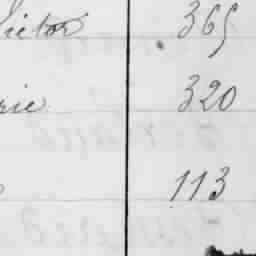 Victor 365
rie 320
113